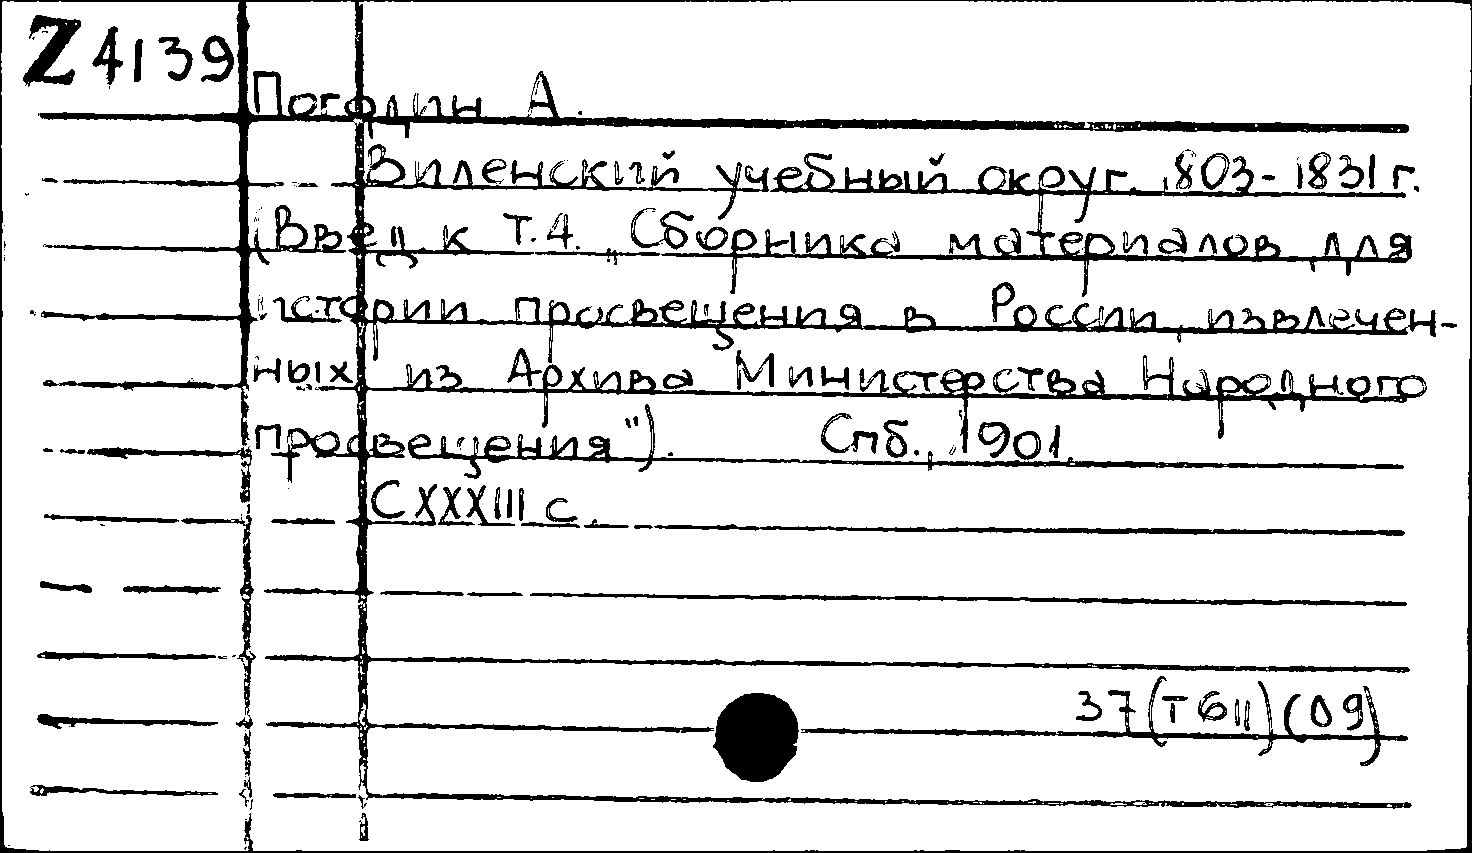 Z 4139
Погодин А.
Виленский учебный округ. 1803-1831 г.
(Введ. к Т.4. „Сборника материалов для
истории просвещения в России, извлечен-
ных из Архива Министерства Народного
просвещения"). Спб., 1901.
CXXXIII с.
37(Т611)(09)